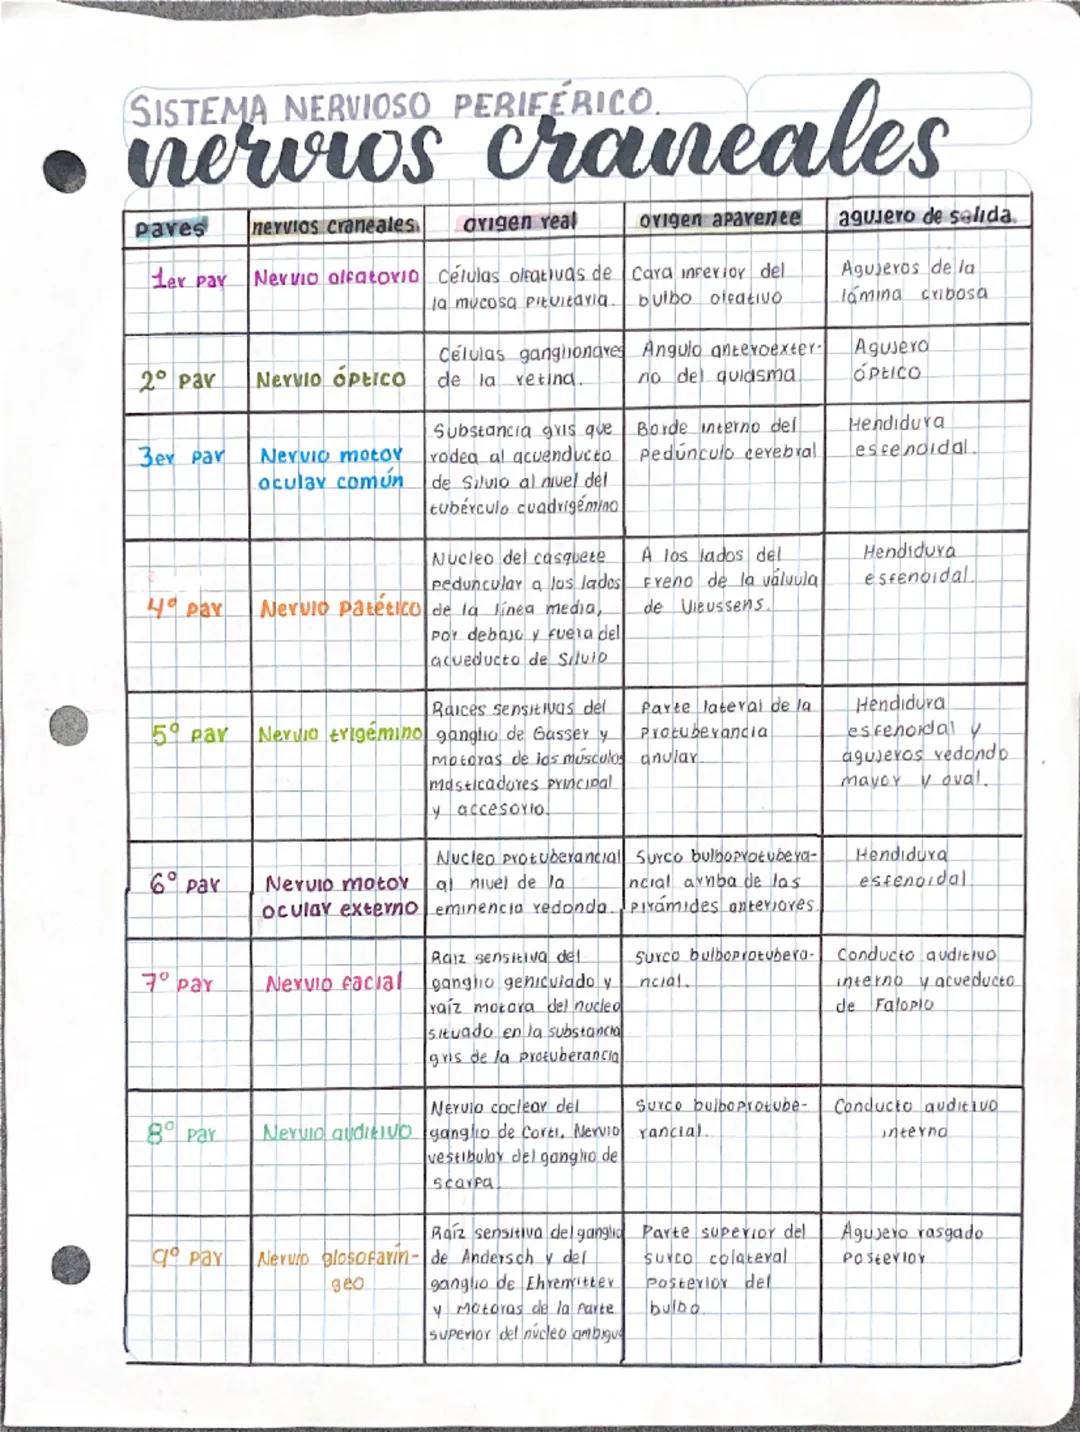 SISTEMA NERVIOSO PERIFÉRICO.
nervios craneales
pares
nervios craneales
origen real
origen aparente
agujero de salida.
1er par
Nervio olfatorio
Células olfativas de
la mucosa pituitaria.
Cara inferior del
bulbo olfativo
Agujeros de la
lámina cribosa
2º par
Nervio óptico
Células ganglionares
de la retina.
Angulo anteroexter-
no del quiasma
Agujero
óptico
3er par
Nervio motor
ocular común
Substancia gris que
rodea al acuenducto
de Silvio al nivel del
tubérculo cuadrigémino
Borde interno del
pedúnculo cerebral
Hendidura
esfenoidal.
4º par
Nervio patético
Nucleo del casquete
peduncular a los lados
de la línea media,
por debajo y fuera del
acueducto de Silvio
A los lados del
freno de la válvula
de Vieussens.
Hendidura
esfenoidal.
5º par
Nervio trigémino
Raices sensitivas del
ganglio de Gasser y
motoras de los músculos
masticadores principal
y accesorio.
Parte lateral de la
Protuberancia
anular.
Hendidura
esfenoidal y
agujeros redondo
mayor y oval.
6º par
Nervio motor
ocular externo
Nucleo protuberancial
al nivel de la
eminencia redonda.
Surco bulboprotubera-
ncial arriba de las
pirámides anteriores
Hendidura
esfenoidal
7º par
Nervio facial
Raiz sensitiva del
ganglio geniculado y
raíz motora del nucleo
situado en la substancia
gris de la protuberancia
Surco bulboprotubera-
ncial.
Conducto auditivo
interno y acueducto
de Falopio
8º par
Nervio auditivo
Nervio coclear del
ganglio de Corti. Nervio
vestibular del ganglio de
scarpa.
Surco bulboprotube-
rancial.
Conducto auditivo
interno
9º par
Nervio glosofarín-
geo
Raíz sensitiva del ganglio
de Andersch y del
ganglio de Ehremritter
y motoras de la parte
superior del núcleo ambiguo
Parte superior del
surco colateral
posterior del
bulbo.
Agujero rasgado
posterior